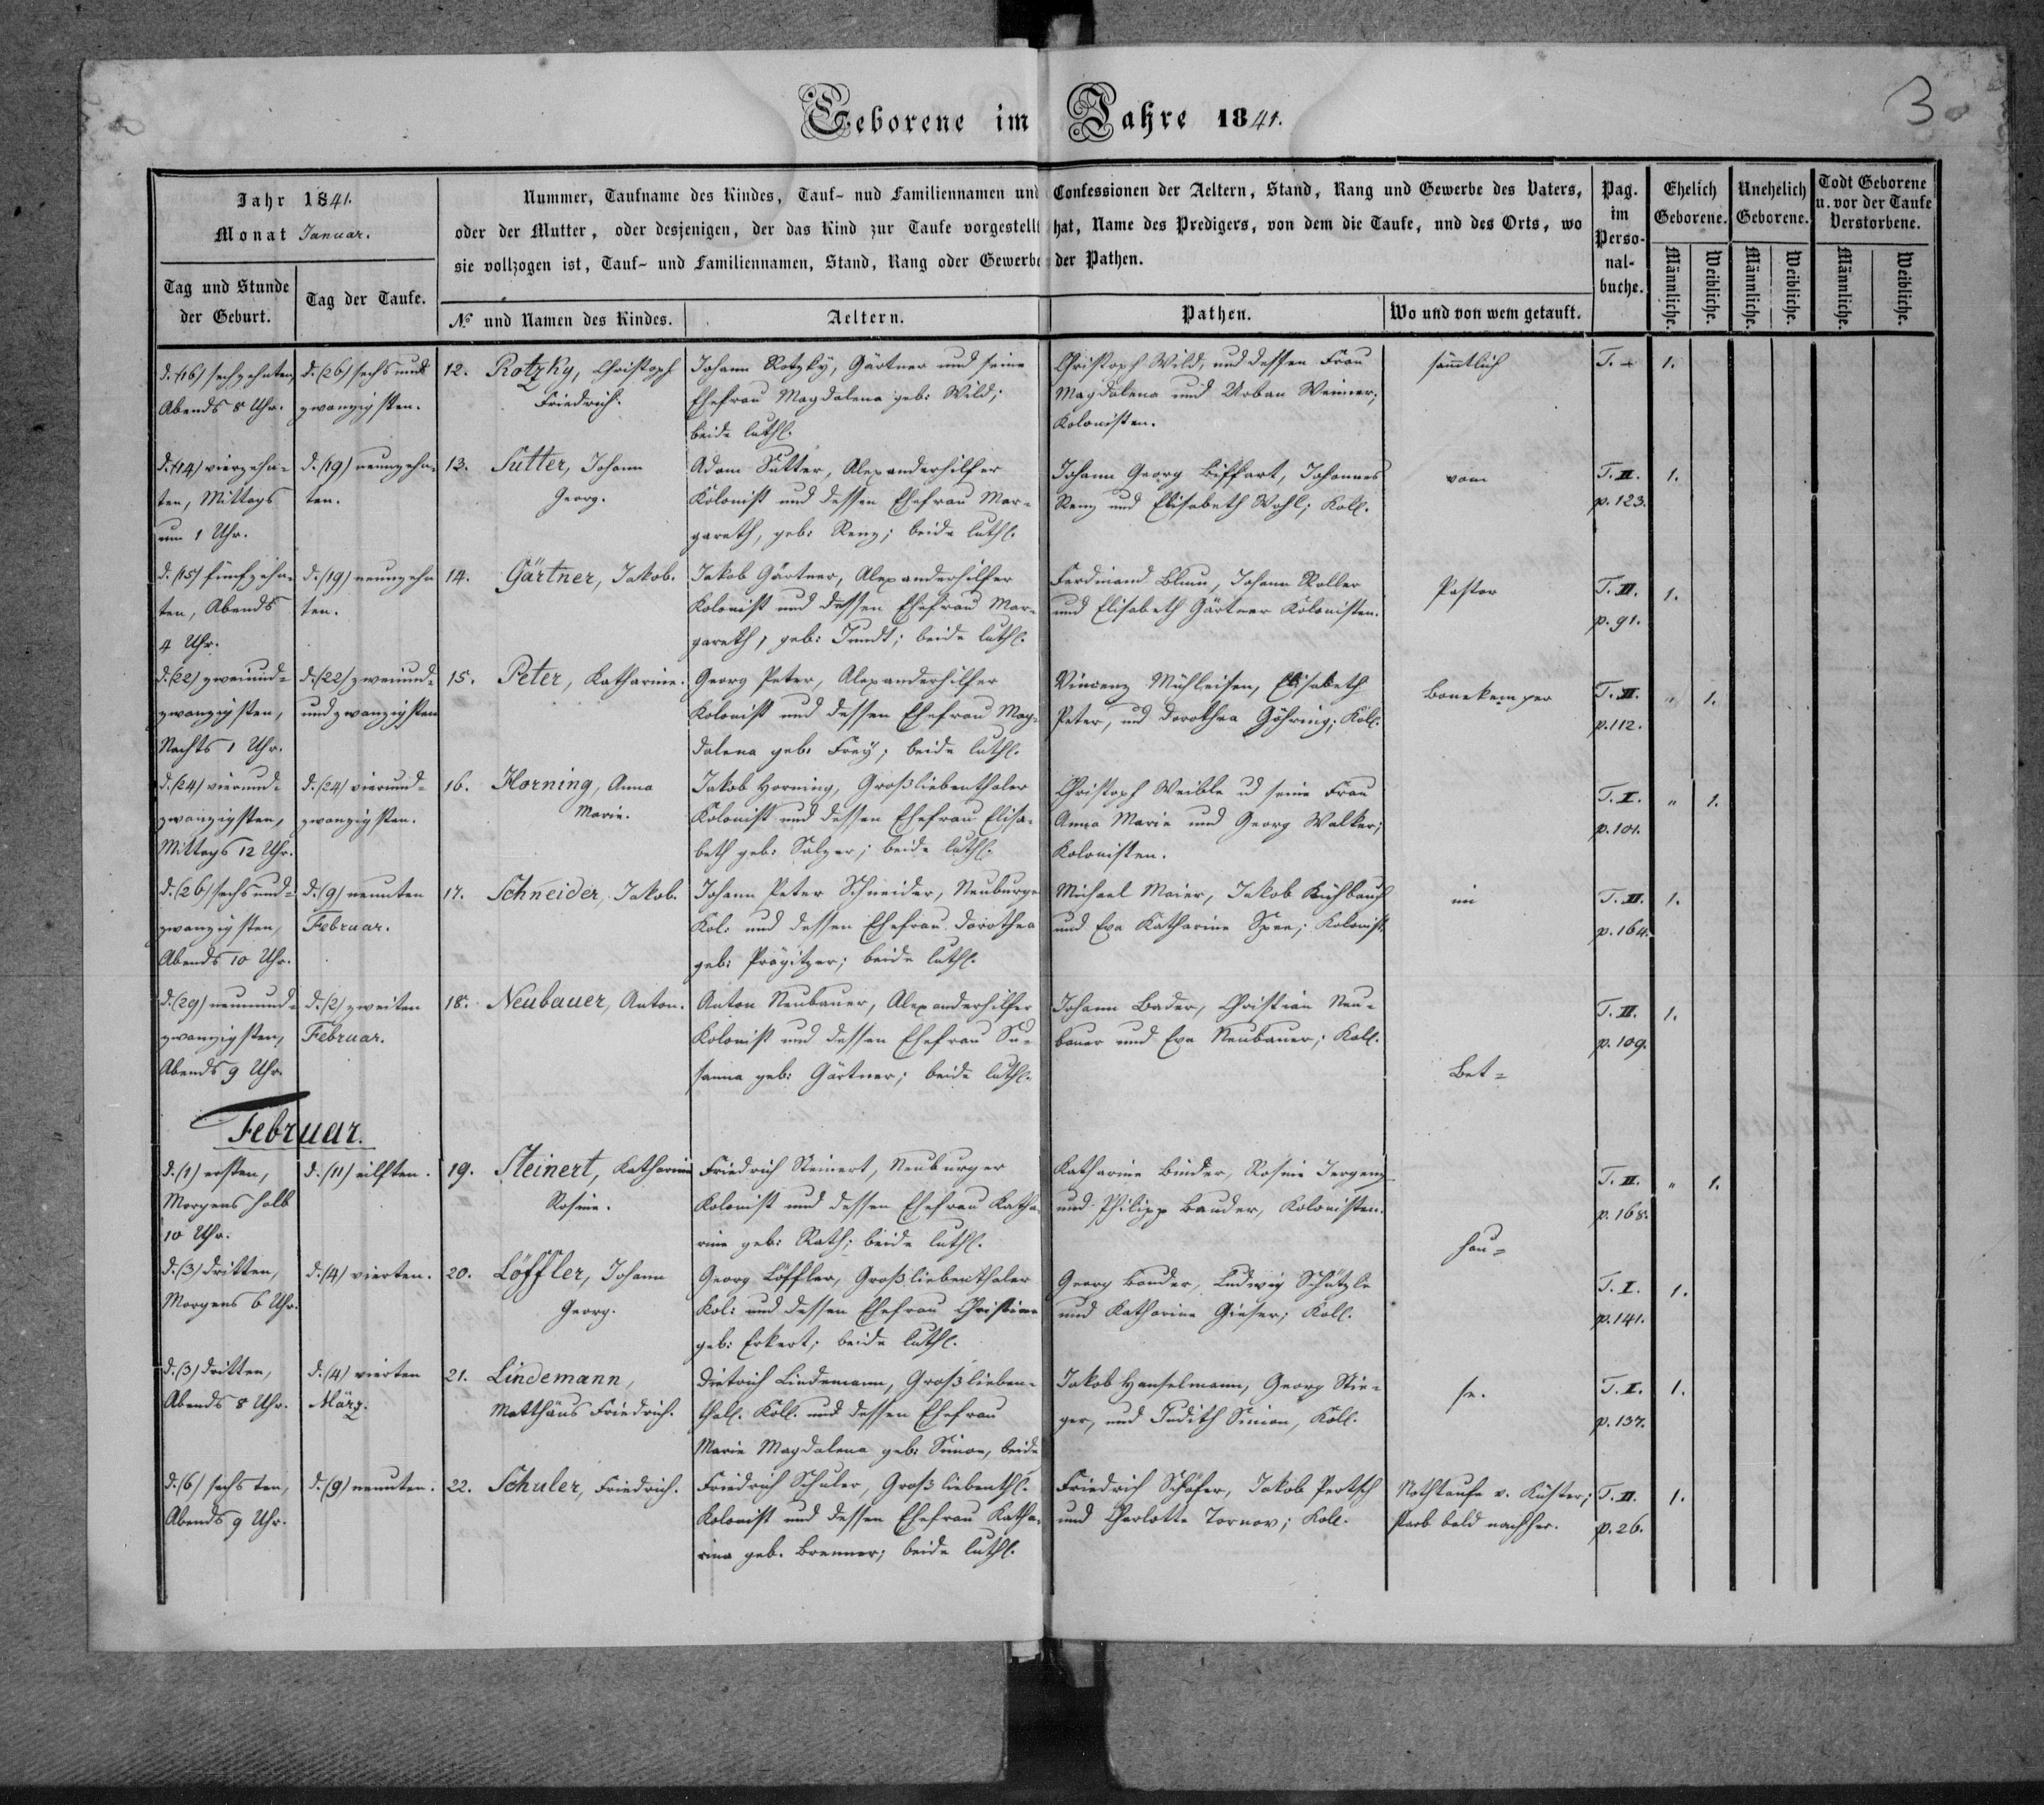 3
Geborene im Jahre 1841.
Jahr 1841.
Monat Januar.
Nummer, Taufname des Kindes, Tauf- und Familiennamen und Confessionen der Aeltern, Stand, Rang und Gewerbe des Vaters,
oder der Mutter, oder desjenigen, der das Kind zur Taufe vorgestellt hat, Name des Predigers, von dem die Taufe, und des Orts, wo
sie vollzogen ist, Tauf- und Familiennamen, Stand, Rang oder Gewerbe der Pathen.
Pag. im Perso-nal-buche.
Ehelich Geborene.
Unehelich Geborene.
Todt Geborene u. vor der Taufe Verstorbene.
Tag und Stunde der Geburt.
Tag der Taufe.
№ und Namen des Kindes.
Aeltern.
Pathen.
Wo und von wem getauft.
Männliche. Weibliche. Männliche. Weibliche. Männliche. Weibliche.
d. (16) sechzehnten, d. (26) sechs und 12. Rotzky, Christoph Johann Rotzky, Gärtner und seine Christoph Wild, und dessen Frau sämtlich T. 1.
Abends 8 Uhr. zwanzigsten. Friedrich. Ehefrau Magdalena geb: Wild; Magdalena und Urban Weimer;
beide luth. Kolonisten.
d. (14) vierzehn- d. (19) neunzehn- 13. Sutter, Johann Adam Sutter, Alexanderhilfer Johann Georg Bissart, Johannes vom T. II. 1.
ten, Mittags ten. Georg. Kolonist und dessen Ehefrau Mar- Renz und Elisabeth Wohl; Koll. p. 123.
um 1 Uhr. gareth, geb: Renz; beide luth.
d. (15) fünfzehn- d. (19) neunzehn 14. Gärtner, Jakob. Jakob Gärtner, Alexanderhilfer Ferdinand Blum, Johann Roller Pastor T. II. 1.
ten, Abends ten. Kolonist und dessen Ehefrau Mar- und Elisabeth Gärtner Kolonisten. p. 91.
4 Uhr. gareth, geb: Jundt; beide luth.
d. (22) zweiund- d. (22) zweiund- 15. Peter, Katharine. Georg Peter, Alexanderhilfer Vincenz Mühleisen, Elisabeth Bonekemper T. II. " 1.
zwanzigsten, und zwanzigsten Kolonist und dessen Ehefrau Mag- Peter, und Dorothea Göhring; Koll. p. 112.
Nachts 1 Uhr. dalena geb: Frey; beide luth.
d. (24) vierund- d. (24) vierund- 16. Horning, Anna Jakob Horning, Großliebenthaler Christoph Weible u seine Frau T. I. " 1.
zwanzigsten, zwanzigsten. Marie. Kolonist und dessen Ehefrau Elisa- Anna Marie und Georg Walker; p. 101.
Mittags 12 Uhr. beth geb: Salzer; beide luth. Kolonisten.
d. (26) sechs und- d. (9) neunten 17. Schneider, Jakob. Johann Peter Schneider, Neuburger Michael Maier, Jakob im T. II. 1.
zwanzigsten, Februar. Kol: und dessen Ehefrau Dorothea und Eva Katharine Spee; Kolonist. p. 164.
Abends 10 Uhr. geb: Prägitzer; beide luth.
d. (29) neunund- d. (2) zweiten 18. Neubauer, Anton. Anton Neubauer, Alexanderhilfer Johann Bader, Christian Neu- T. II. 1.
zwanzigsten, Februar. Kolonist und dessen Ehefrau Su- bauer und Eva Neubauer; Koll. p. 109.
Abends 9 Uhr. sanna geb: Gärtner; beide luth. Bet-
Februar.
d. (1) ersten, d. (11) eilften. 19. Steinert, Katharine Friedrich Steinert, Neuburger Katharine Binder, Rosine Jergenz T. II. " 1.
Morgens halb Rosine. Kolonist und dessen Ehefrau Katha- und Philipp Bauder, Kolonisten. p. 168.
10 Uhr. rine geb: Rath; beide luth. hau-
d. (3) dritten, d. (4) vierten. 20. Löffler, Johann Georg Löffler, Großliebenthaler Georg Bauder, Ludwig Schätzle T. I. 1.
Morgens 6 Uhr. Georg. Kol: und dessen Ehefrau Christine und Katharine Gieser; Koll. p. 141.
geb: Erkert; beide luth.
d. (3) dritten, d. (4) vierten 21. Lindemann, Dietrich Lindemann, Großlieben- Jakob Hanselmann, Georg Stie- se. T. I. 1.
Abends 8 Uhr. März. Matthäus Friedrich. thall. Koll. und dessen Ehefrau ger, und Judith Simon, Koll. p. 137.
Marie Magdalena geb: Simon, beide
d. (6) sechsten, d. (9) neunten. 22. Schuler, Friedrich. Friedrich Schuler, Großliebenthl. Friedrich Schäfer, Jakob Pertsch Nothtaufe v. Küster; T. II. 1.
Abends 9 Uhr. Kolonist und dessen Ehefrau Katha- und Charlotte Tornov; Koll. starb bald nachher. p. 26.
rina geb. Brenner; beide luth.